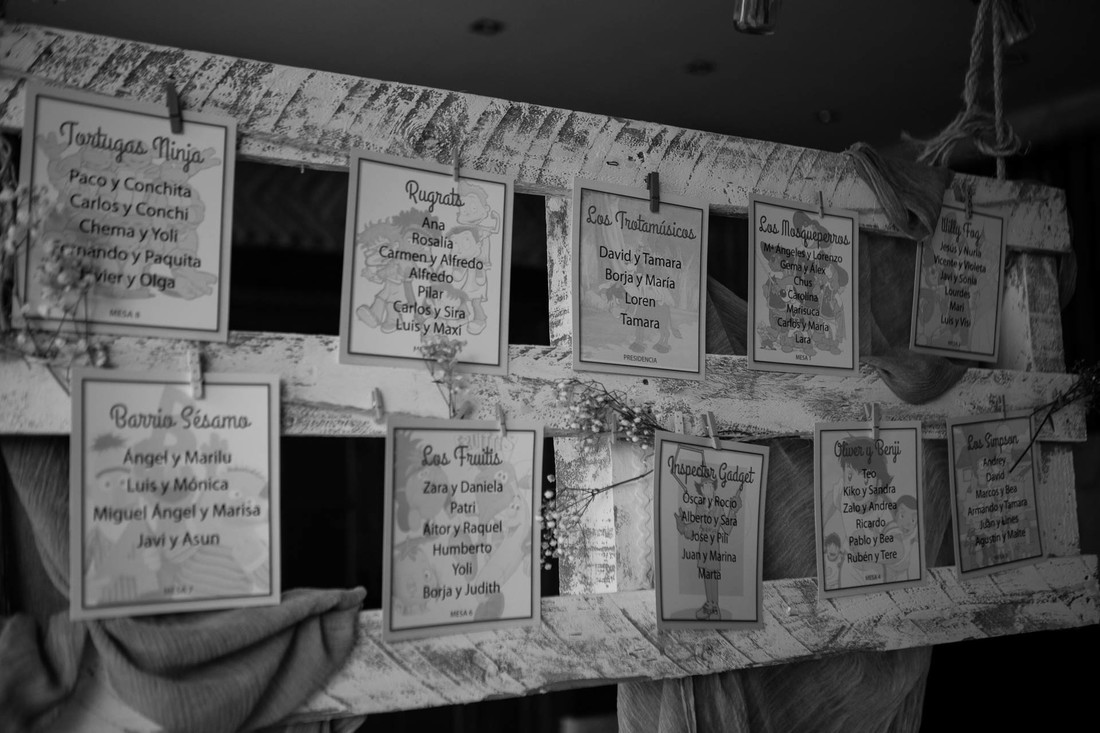 Tortugas Ninja
Paco y Conchita
Carlos y Conchi
Chema y Yoli
Fernando y Paquita
Javier y Olga
MESA 8
Rugrats
Ana
Rosalía
Carmen y Alfredo
Alfredo
Pilar
Carlos y Sira
Luis y Maxi
Los Trotamúsicos
David y Tamara
Borja y María
Loren
Tamara
PRESIDENCIA
Los Mosqueperros
Mª Ángeles y Lorenzo
Gema y Álex
Chus
Carolina
Marisuca
Carlos y María
Lara
MESA 1
Willy Fog
Jesús y Nuria
Vicente y Violeta
Javi y Sonia
Lourdes
Mari
Luis y Visi
Barrio Sésamo
Ángel y Marilu
Luis y Mónica
Miguel Ángel y Marisa
Javi y Asun
MESA 7
Los Fruitis
Zara y Daniela
Patri
Aitor y Raquel
Humberto
Yoli
Borja y Judith
MESA 6
Inspector Gadget
Óscar y Rocío
Alberto y Sara
Jose y Pili
Juan y Marina
Marta
Oliver y Benji
Teo
Kiko y Sandra
Zalo y Andrea
Ricardo
Pablo y Bea
Rubén y Tere
MESA 4
Los Simpson
Andrey
David
Marcos y Bea
Armando y Tamara
Julio y Ines
Agustín y Maite